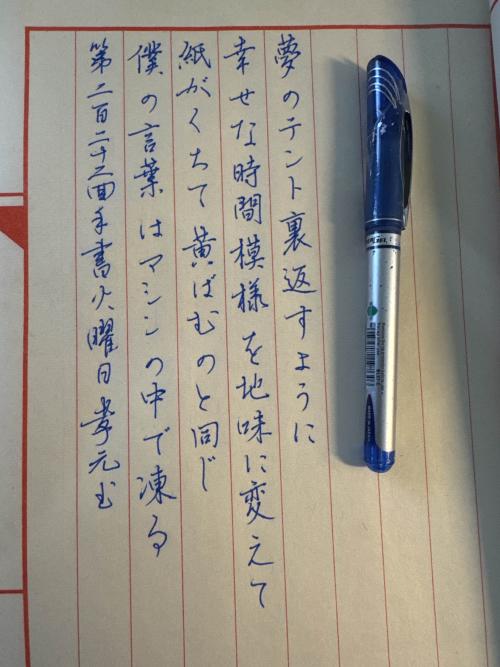 夢のテント裏返すように
幸せな時間模様を地味に変えて
紙がくちて黄ばむのと同じ
僕の言葉はマシンの中で凍る
第二百二十三回手書火曜日孝元书